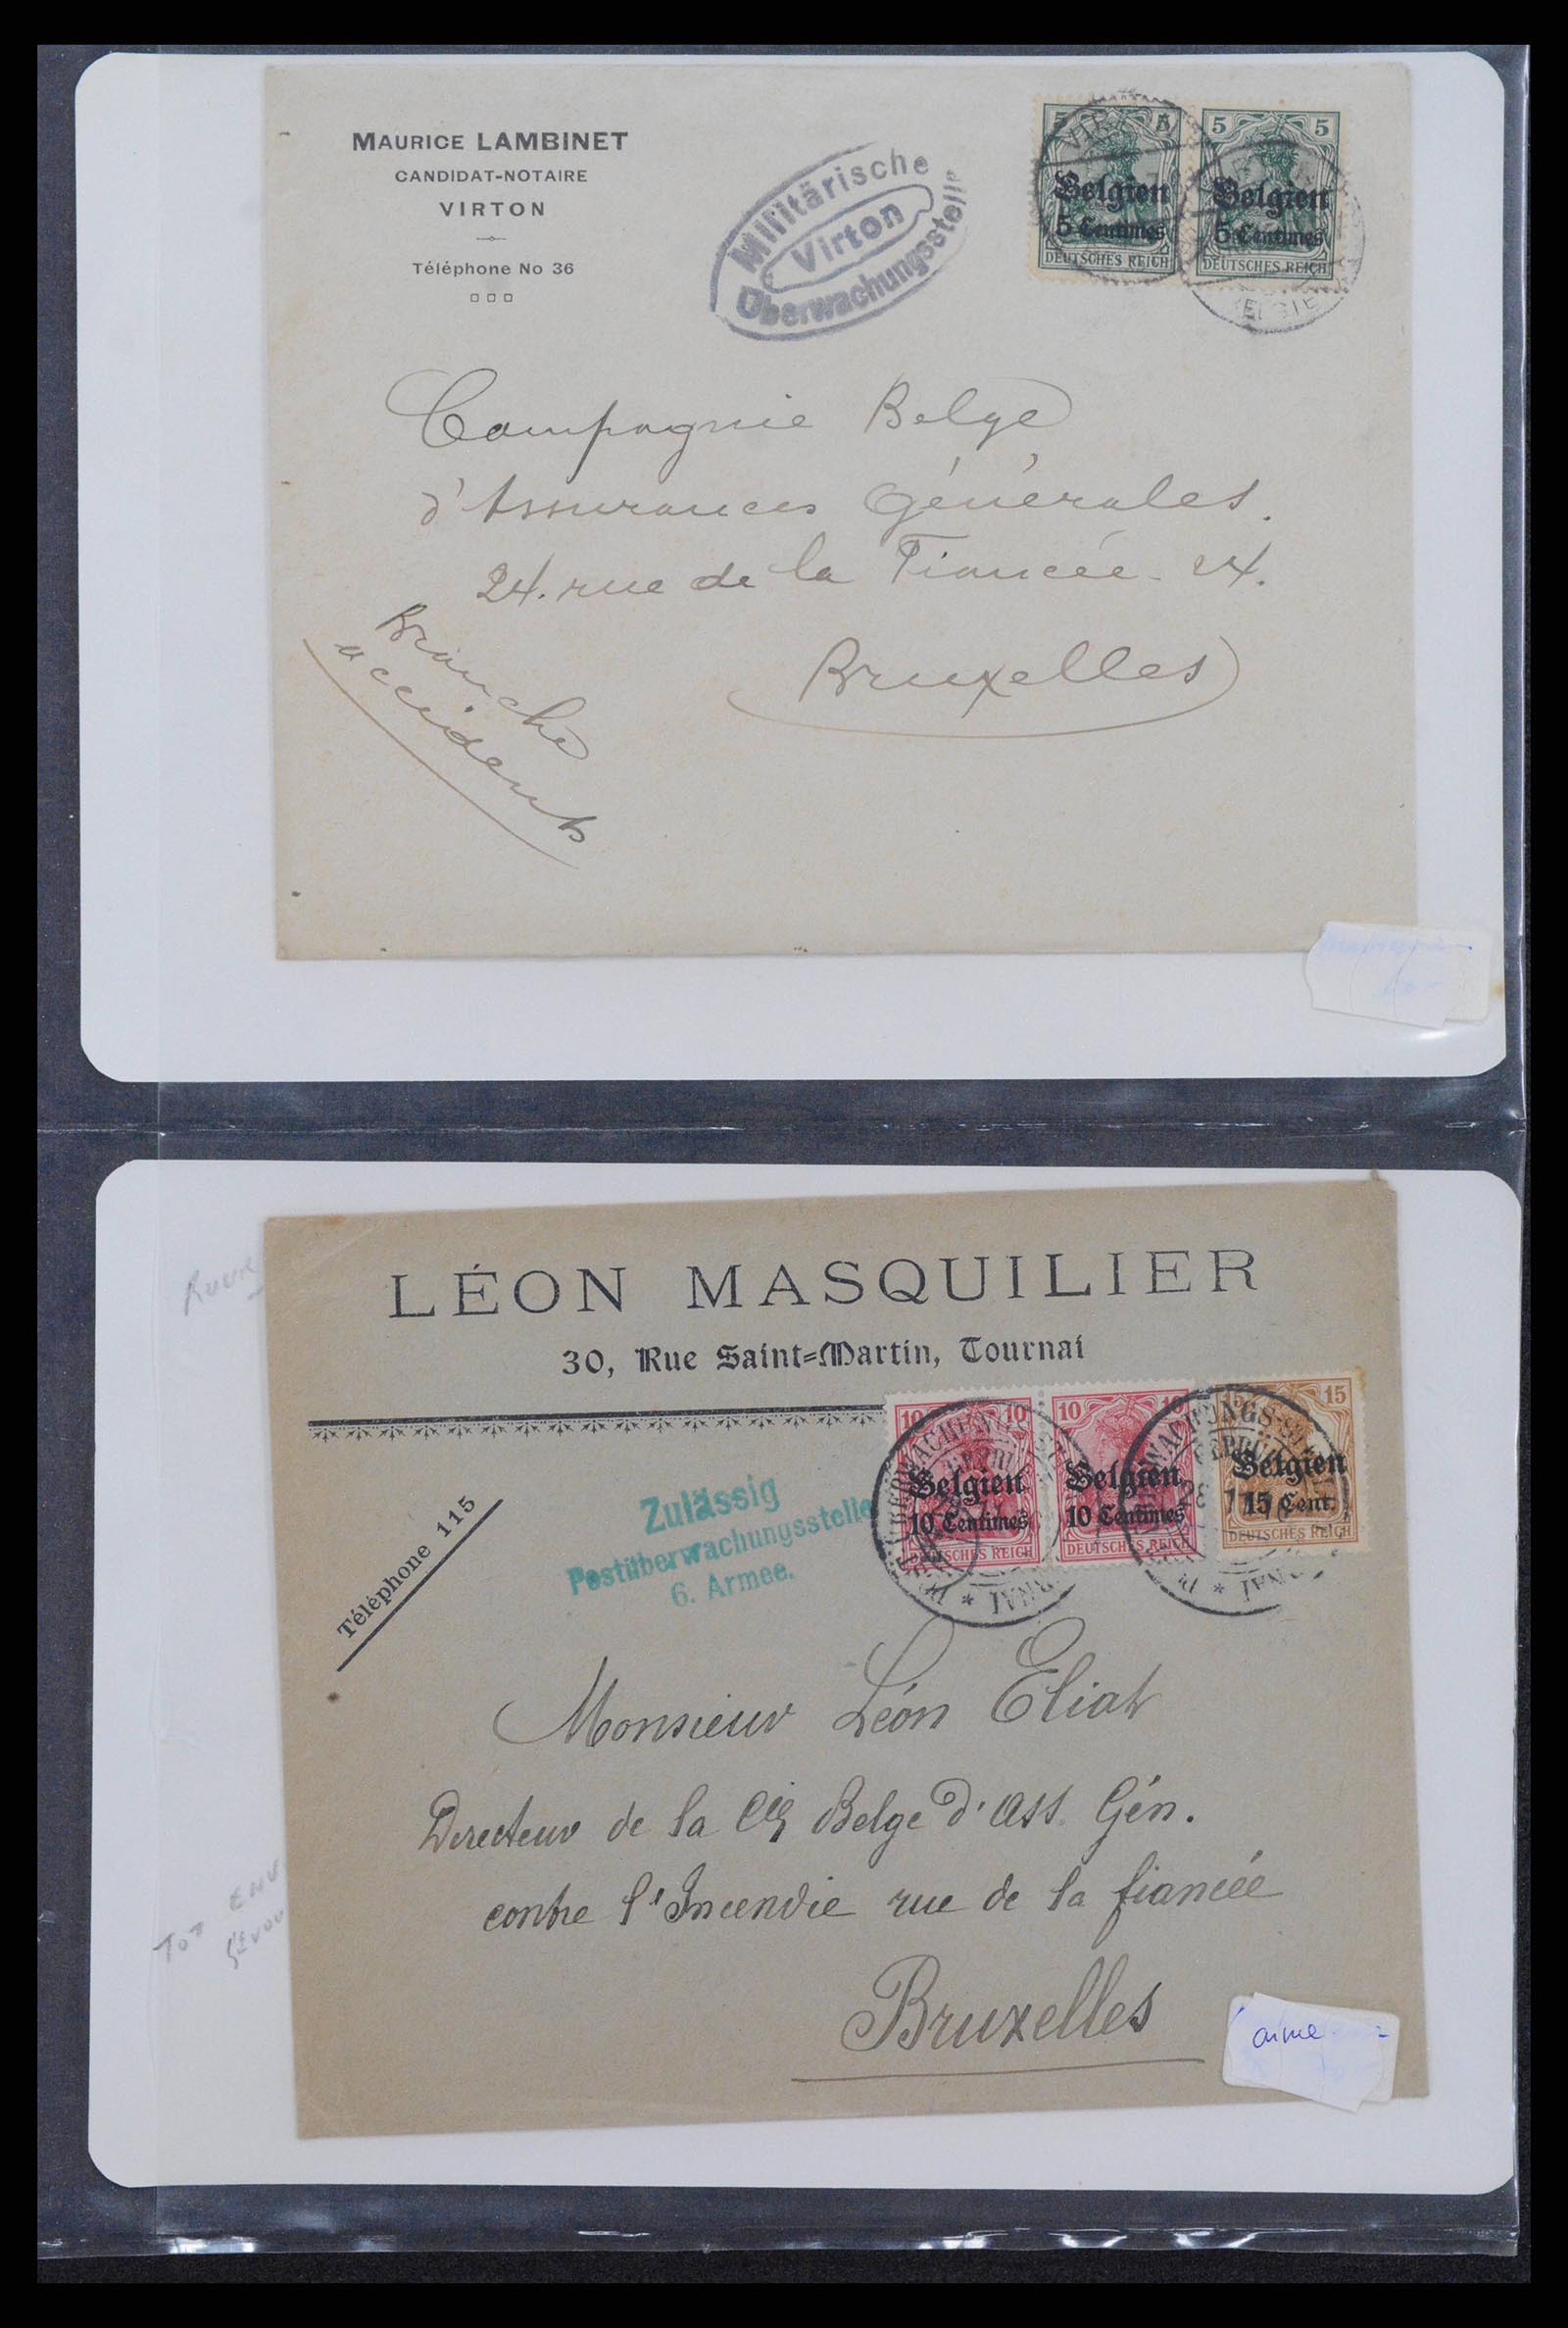 MAURICE LAMBINET
CANDIDAT-NOTAIRE
VIRTON
Téléphone No 36
Militärische
Virton
Überwachungsstelle
5 5
Belgien Belgien
5 Centimes 5 Centimes
DEUTSCHES REICH DEUTSCHES REICH
Compagnie Belge
d'Assurances Générales.
24. rue de la Fiancée - 24.
Bruxelles
Branche
accidents
LÉON MASQUILIER
30, Rue Saint=Martin, Tournai
Téléphone 115
Zulässig
Postüberwachungsstelle
6. Armee.
10 10 10 10 15 15
Belgien Belgien Belgien
10 Centimes 10 Centimes 15 Cent.
DEUTSCHES REICH DEUTSCHES REICH DEUTSCHES REICH
Monsieur Léon Eliat
Directeur de la Cie Belge d'Ass. Gén.
contre l'Incendie rue de la fiancée
Bruxelles
TOT